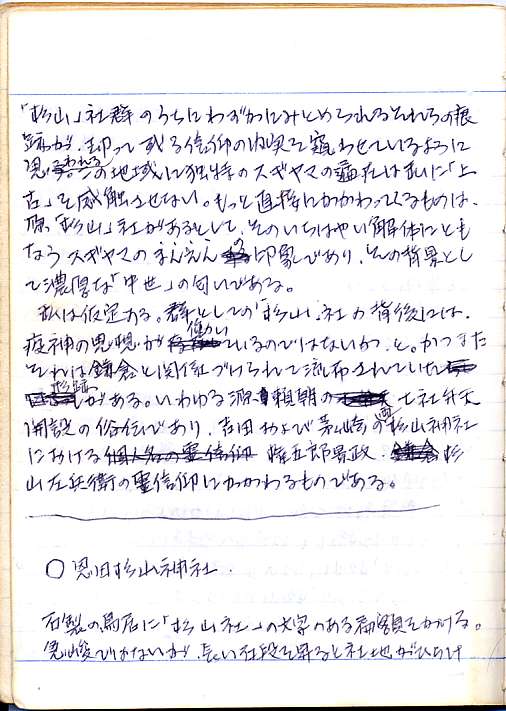 「杉山」社群のうちにわずかにみとめられるそれらの痕
跡が、却って或る信仰の内奥を窺わせているように
思われる。この地域に独特のスギヤマの遍在は私に「上
古」を感触させない。もっと直接にかかわってくるものは、
原「杉山」社があるとして、そのいちはやい解体にとも
なうスギヤマの まんえんの印象であり、その背景とし
て濃厚な「中世」の匂いである。
私は仮定する。群としての「杉山」社の背後には、
疫神の思想が働いているのではないか、と。かつまた
それは鎌倉と関係づけられて流布されていた
形跡がある。いわゆる源頼朝の 七社弁天
開設の俗伝であり、吉田および茅ヶ崎の両杉山神社
における 権五郎景政、杉
山左兵衛の霊信仰にかかわるものである。
○ 恩田杉山神社.
石製の鳥居に「杉山社」の文字のある扁額をかける。
急峻ではないが、長い石段を昇ると社地がひらけ